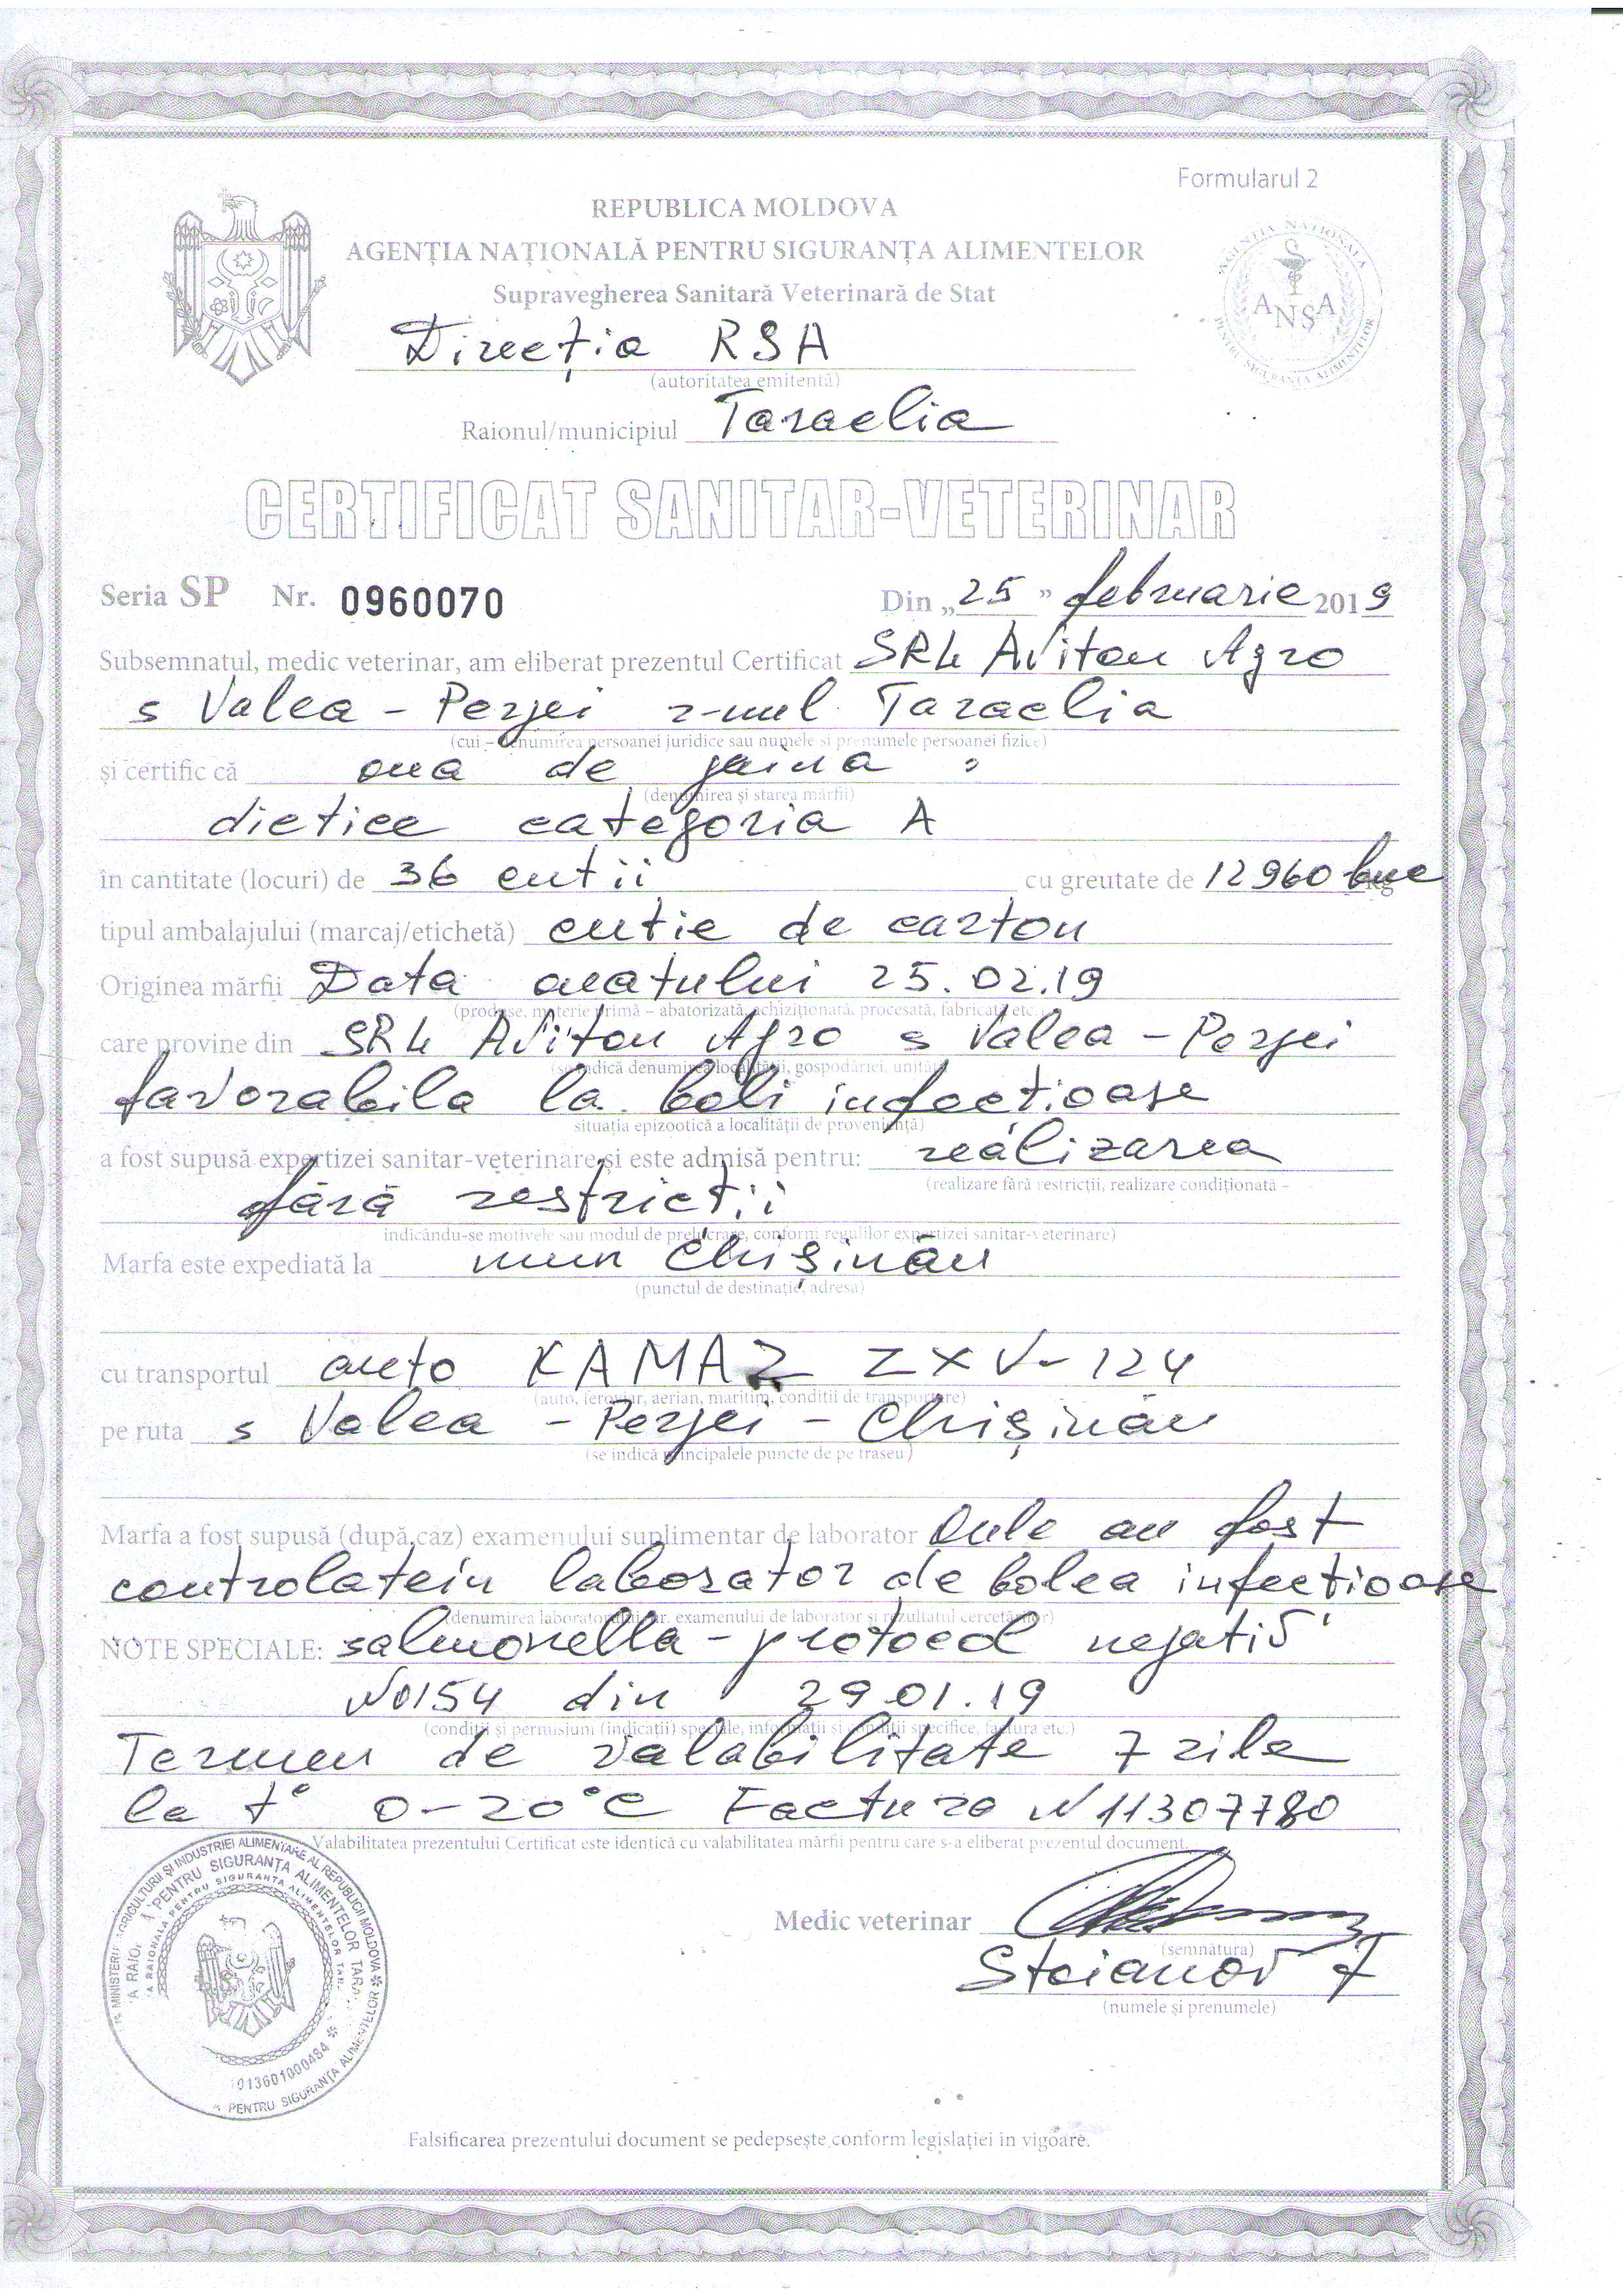 Formularul 2
REPUBLICA MOLDOVA
AGENȚIA NAȚIONALĂ PENTRU SIGURANȚA ALIMENTELOR
Supravegherea Sanitară Veterinară de Stat
AGENȚIA NAȚIONALĂ
ANSA
PENTRU SIGURANȚA ALIMENTELOR
Direcția RSA
(autoritatea emitentă)
Raionul/municipiul Taraclia
CERTIFICAT SANITAR-VETERINAR
Seria SP Nr. 0960070 Din „25” februarie 2019
Subsemnatul, medic veterinar, am eliberat prezentul Certificat SRL Aviton Agro
s Valea - Perjei r-nul Taraclia
(cui – denumirea persoanei juridice sau numele și prenumele persoanei fizice)
și certific că oua de gaina
(denumirea și starea mărfii)
dietice categoria A
în cantitate (locuri) de 36 cutii cu greutate de 12960 buc kg
tipul ambalajului (marcaj/etichetă) cutie de carton
Originea mărfii Data ouatului 25.02.19
(produse, materie primă – abatorizată, achiziționată, procesată, fabricată etc.)
care provine din SRL Aviton Agro s Valea - Perjei
(se indică denumirea localității, gospodăriei, unității)
favorabila la boli infecțioase
situația epizootică a localității de proveniență)
a fost supusă expertizei sanitar-veterinare și este admisă pentru: realizarea
(realizare fără restricții, realizare condiționată –
fără restricții
indicându-se motivele sau modul de prelucrare, conform regulilor expertizei sanitar-veterinare)
Marfa este expediată la mun Chișinău
(punctul de destinație, adresa)
cu transportul auto KAMAZ ZXV-124
(auto, feroviar, aerian, maritim, condiții de transportare)
pe ruta s Valea - Perjei - Chișinău
(se indică principalele puncte de pe traseu)
Marfa a fost supusă (după caz) examenului suplimentar de laborator Oule au fost
controlate in laborator de bolea infectioase
(denumirea laboratorului, nr. examenului de laborator și rezultatul cercetărilor)
NOTE SPECIALE: salmonella - protocol negativ
N0154 din 29.01.19
(condiții și permisiuni (indicații) speciale, informații și condiții specifice, factura etc.)
Termen de valabilitate 7 zile
la t° 0-20°C Factura N 11307780
Valabilitatea prezentului Certificat este identică cu valabilitatea mărfii pentru care s-a eliberat prezentul document.
Medic veterinar
(semnătura)
Stoianov F
(numele și prenumele)
PENTRU SIGURANȚA ALIMENTELOR
1013601000484
Falsificarea prezentului document se pedepsește conform legislației în vigoare.